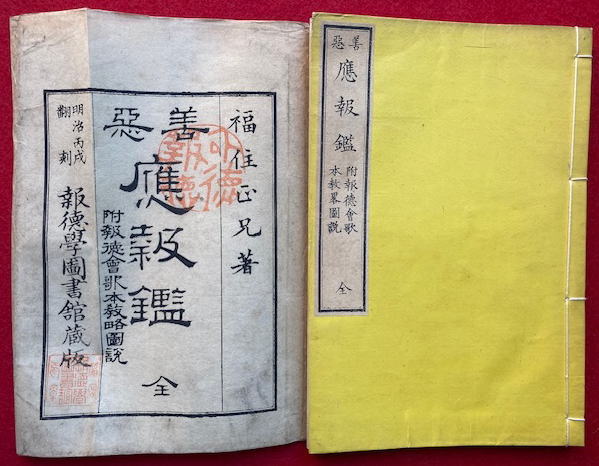 福住正兄著
善惡
應報鑑
附報德會歌本教略圖說
全
明治丙戌
翻刻
報德學圖書館藏版
善惡
應報鑑
附報德會歌
本教畧圖說
全